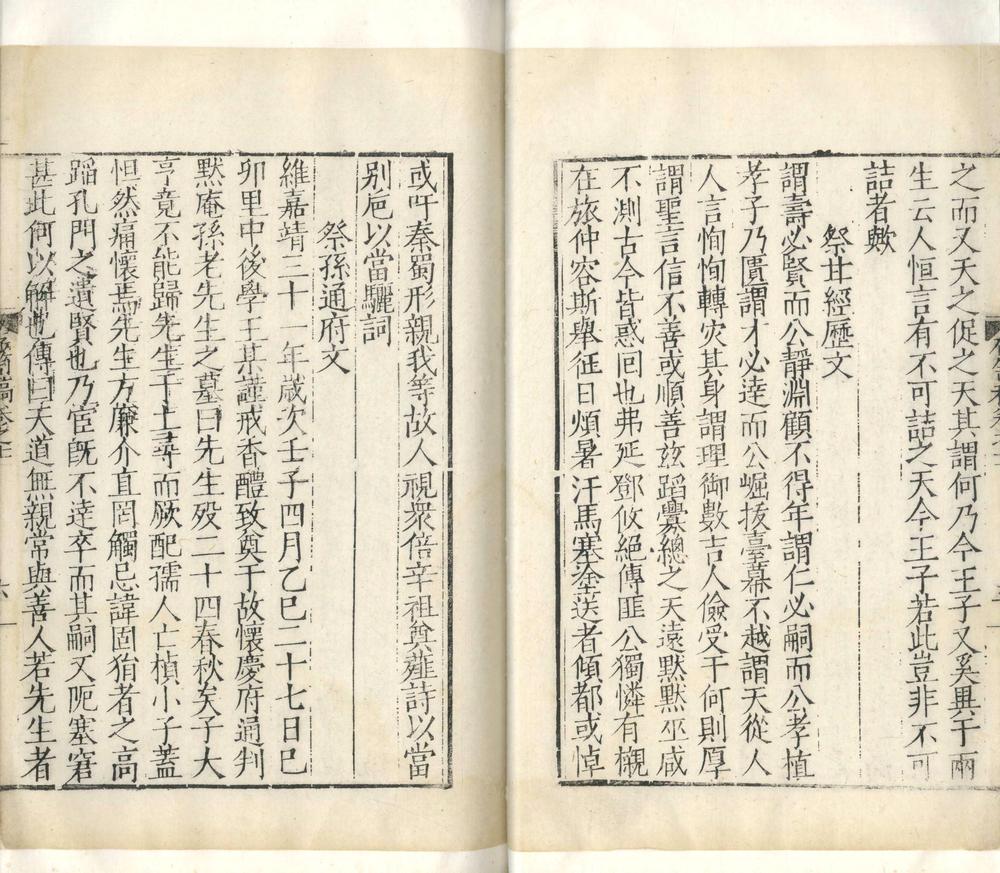 之而又天之促之天其謂何乃今王子又奚異于兩
生云人恒言有不可詰之天今王子若此豈非不可
詰者歟
祭甘經歷文
謂壽必賢而公靜淵顧不得年謂仁必嗣而公孝植
孝子乃匱謂才必達而公崛拔臺幕不越謂天從人
人言恂恂轉灾其身謂理御數吉人儉受于何則厚
謂聖言信不善或順善玆蹈釁總之天遠默默巫咸
不測古今皆惑回也弗延鄧攸絕傳匪公獨憐有櫬
在旅仲容斯舉征日煩暑汗馬塞塗送者傾都或悼
或吁秦蜀形親我等故人視衆倍辛祖奠薤詩以當
别巵以當驪詞
祭孫通府文
維嘉靖三十一年歲次壬子四月乙巳二十七日巳
卯里中後學王某謹戒香醴致奠于故懷慶府通判
默庵孫老先生之墓曰先生殁二十四春秋矣子大
亨竟不能歸先生于土尋而厥配孺人亡楨小子蓋
怛然痛懷焉先生方廉介直罔觸忌諱固狷者之高
蹈孔門之遺賢也乃宦旣不達卒而其嗣又阨塞窘
甚此何以解也傳曰天道無親常與善人若先生者